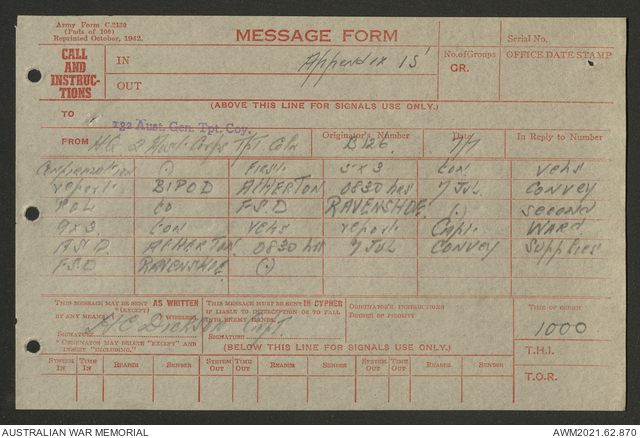 Army Form C.2136
(Pads of 100)
Reprinted October, 1942.
MESSAGE FORM
Serial No.
CALL AND INSTRUC-TIONS
IN
Appendix 15'
No. of Groups
GR.
OFFICE DATE STAMP
OUT
(ABOVE THIS LINE FOR SIGNALS USE ONLY.)
TO
132 Aust. Gen. Tpt. Coy.
FROM HQ 2 Aust Corps Tpt Coln
Originator's Number B126
Date 7/7
In Reply to Number
CONFIRMATION (.) FIRST 3x3 ton vehs
report BIPOD ATHERTON 0830 hrs 7 JUL CONVEY
POL to FSD RAVENSHOE (.) SECOND
9x3 ton vehs report Capt. WARD
ASD ATHERTON 0830 hrs 7 JUL CONVEY SUPPLIES
FSD RAVENSHOE (.)
THIS MESSAGE MAY BE SENT AS WRITTEN
(EXCEPT)
BY ANY MEANS WIRELESS
THIS MESSAGE MUST BE SENT IN CYPHER
IF LIABLE TO INTERCEPTION OR TO FALL
INTO ENEMY HANDS.
ORIGINATOR'S INSTRUCTIONS
DEGREE OF PRIORITY
TIME OF ORIGIN
1000
SIGNATURE
Dickson Capt.
SIGNATURE
T.H.I.
* ORIGINATOR MAY DELETE "EXCEPT" AND
INSERT "INCLUDING."
(BELOW THIS LINE FOR SIGNALS USE ONLY.)
T.O.R.
SYSTEM IN TIME IN READER SENDER SYSTEM OUT TIME OUT READER SENDER SYSTEM OUT TIME OUT READER SENDER
AUSTRALIAN WAR MEMORIAL
AWM2021.62.870